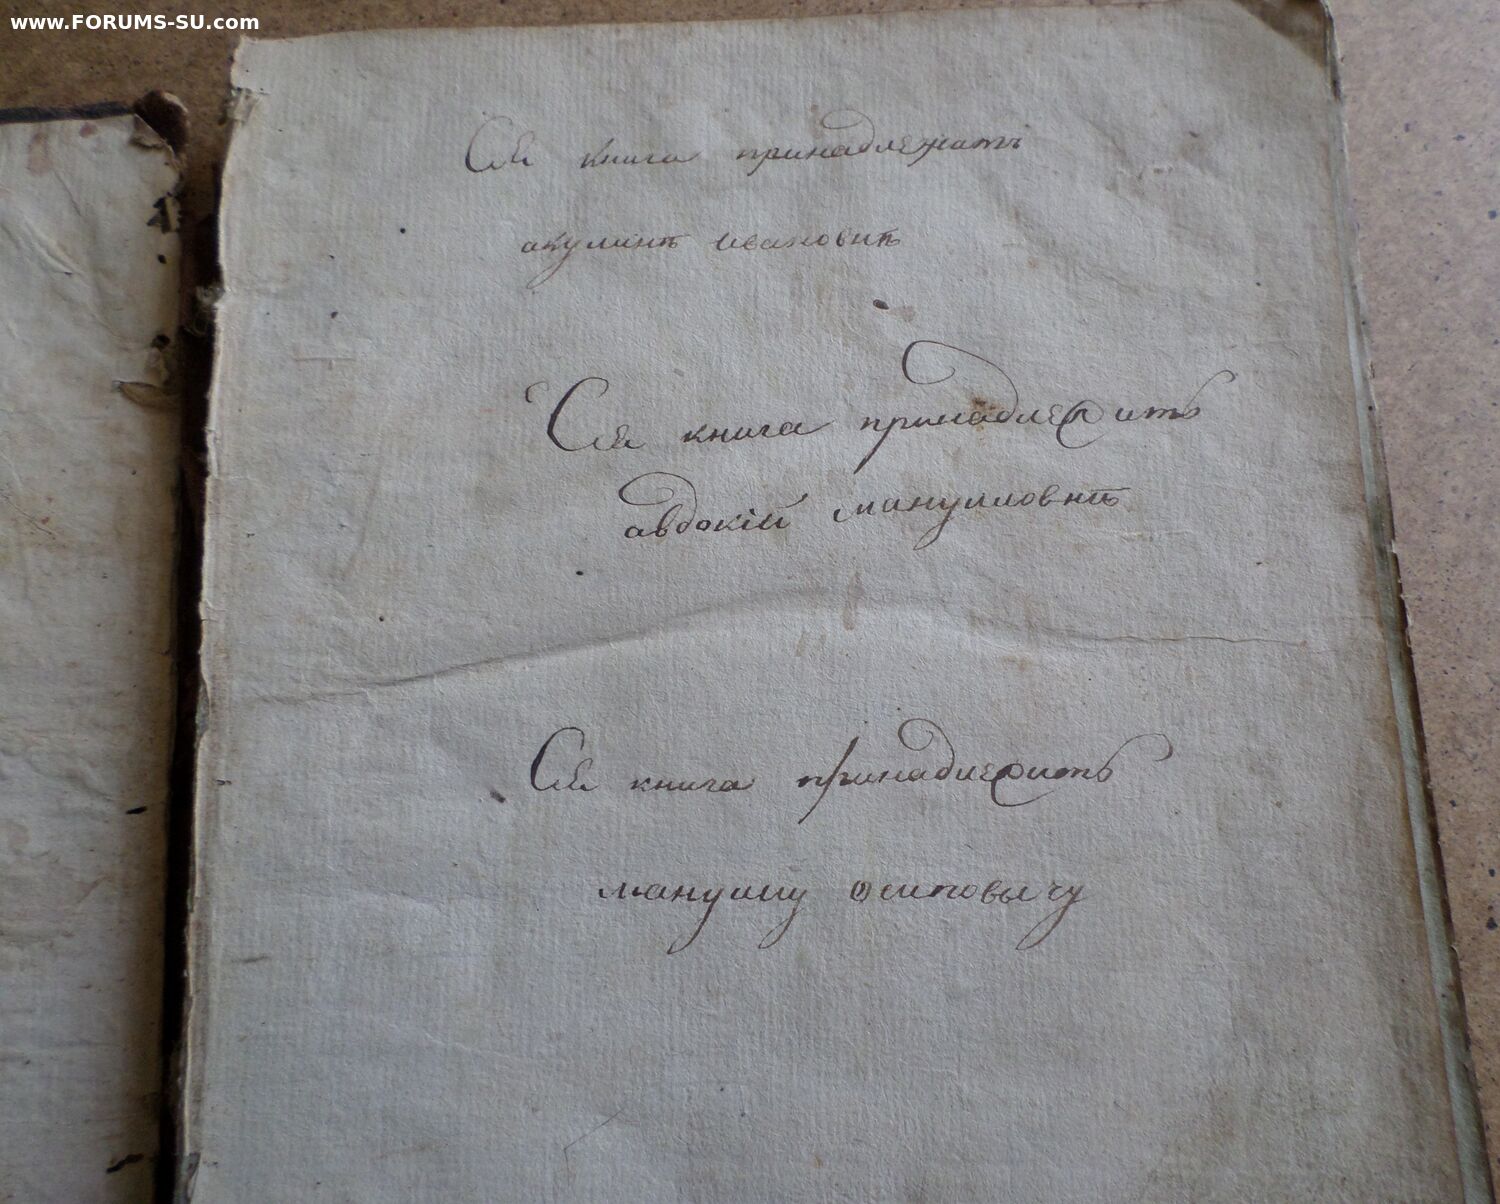 www.FORUMS-SU.com
Сия книга принадлежатъ
акулинѣ ивановнѣ
Сия книга принадлежитъ
авдокїй мануиловнѣ
Сия книга принадлежитъ
мануилу осиповычу